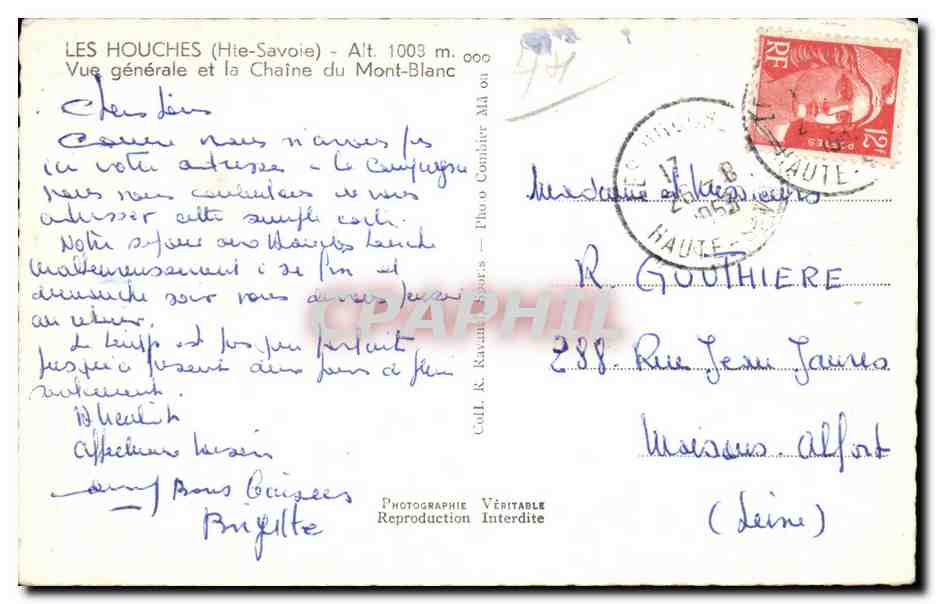 LES HOUCHES (Hte-Savoie) - Alt. 1008 m.
Vue générale et la Chaîne du Mont-Blanc
ooo
44
Comme nous n'avons pas
ici votre adresse à la campagne
nous nous contentons de vous
adresser cette simple carte.
Notre séjour aux Houches touche
malheureusement à sa fin et
dimanche soir nous devons penser
au retour.
Le temps est pas parfait
jusqu'à présent deux jours de
seulement.
Affectueux
Bons Baisers
Brigitte
Coll. R. Ravanel Sports - Photo Combier Mâcon
PHOTOGRAPHIE VÉRITABLE
Reproduction Interdite
RF
12F
POSTES
LES HOUCHES
17
HAUTE-
HAUTE-
Madame et Messieurs
R. GOUTHIERE
288. Rue Jean Jaures
Maisons-Alfort
(Seine)
CPAPHIL